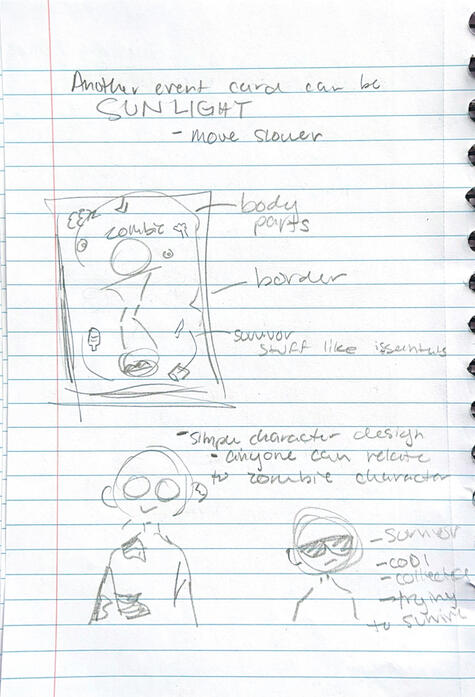 Another event card can be
SUNLIGHT
- move slower
zombie
body
parts
border
survivor
stuff like issentials
- simple character design
- anyone can relate
to zombie character
- survivor
- cool
- collected
- trying
to survive